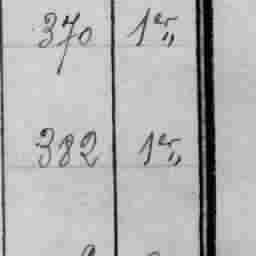 370 1er „
382 1er „